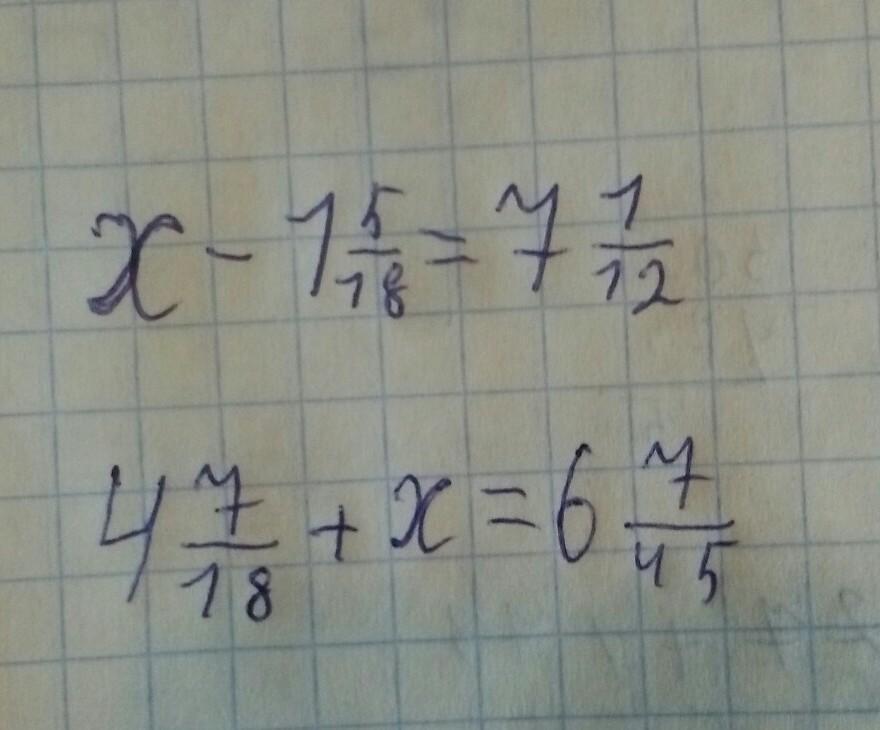 x - 1 5/18 = 7 1/12
4 7/18 + x = 6 7/45